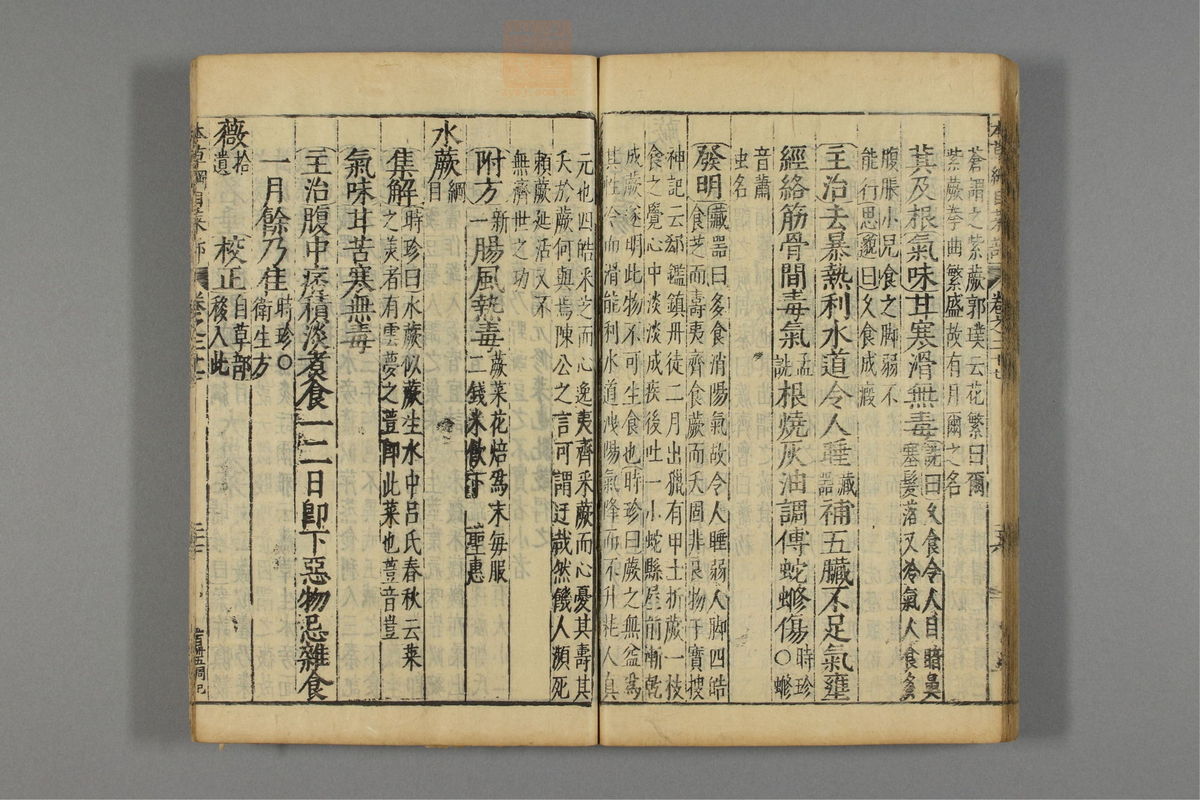 蒼謂之紫蕨郭璞云花繁曰爾
紫蕨拳曲繁盛故有月爾之名
萁及根氣味甘寒滑無毒詵曰久食令人目暗鼻
塞髮落又冷氣人食多
腹脹小兒食之脚弱不
能行思邈曰久食成瘕
主治去暴熱利水道令人睡藏器補五臟不足氣壅
經絡筋骨間毒氣孟詵根燒灰油調傅蛇蟉傷時珍○蟉
音蕭
虫名
發明藏器曰多食消陽氣故令人睡弱人脚四皓
食芝而壽夷齊食蕨而夭固非良物干寶搜
神記云郗鑑鎮丹徒二月出獵有甲士折蕨一枝
食之覺心中淡淡成疾後吐一小蛇縣屋前漸乾
成蕨遂明此物不可生食也時珍曰蕨之無益爲
其性冷而滑能利水道洩陽氣降而不升耗人真
元也四皓采芝而心逸夷齊采蕨而心憂其壽其
夭於蕨何與焉陳公之言可謂迂哉然饑人瀕死
賴蕨延活又不
無濟世之功
附方新一腸風熱毒蕨菜花焙爲末每服
二錢米飲下 聖惠
水蕨綱目
集解時珍曰水蕨似蕨生水中呂氏春秋云菜
之美者有雲夢之䔇即此菜也䔇音豈
氣味甘苦寒無毒
主治腹中痞積淡煮食一二日即下惡物忌雜食
一月餘乃佳時珍○
衛生方
薇拾遺 校正自草部
移入此